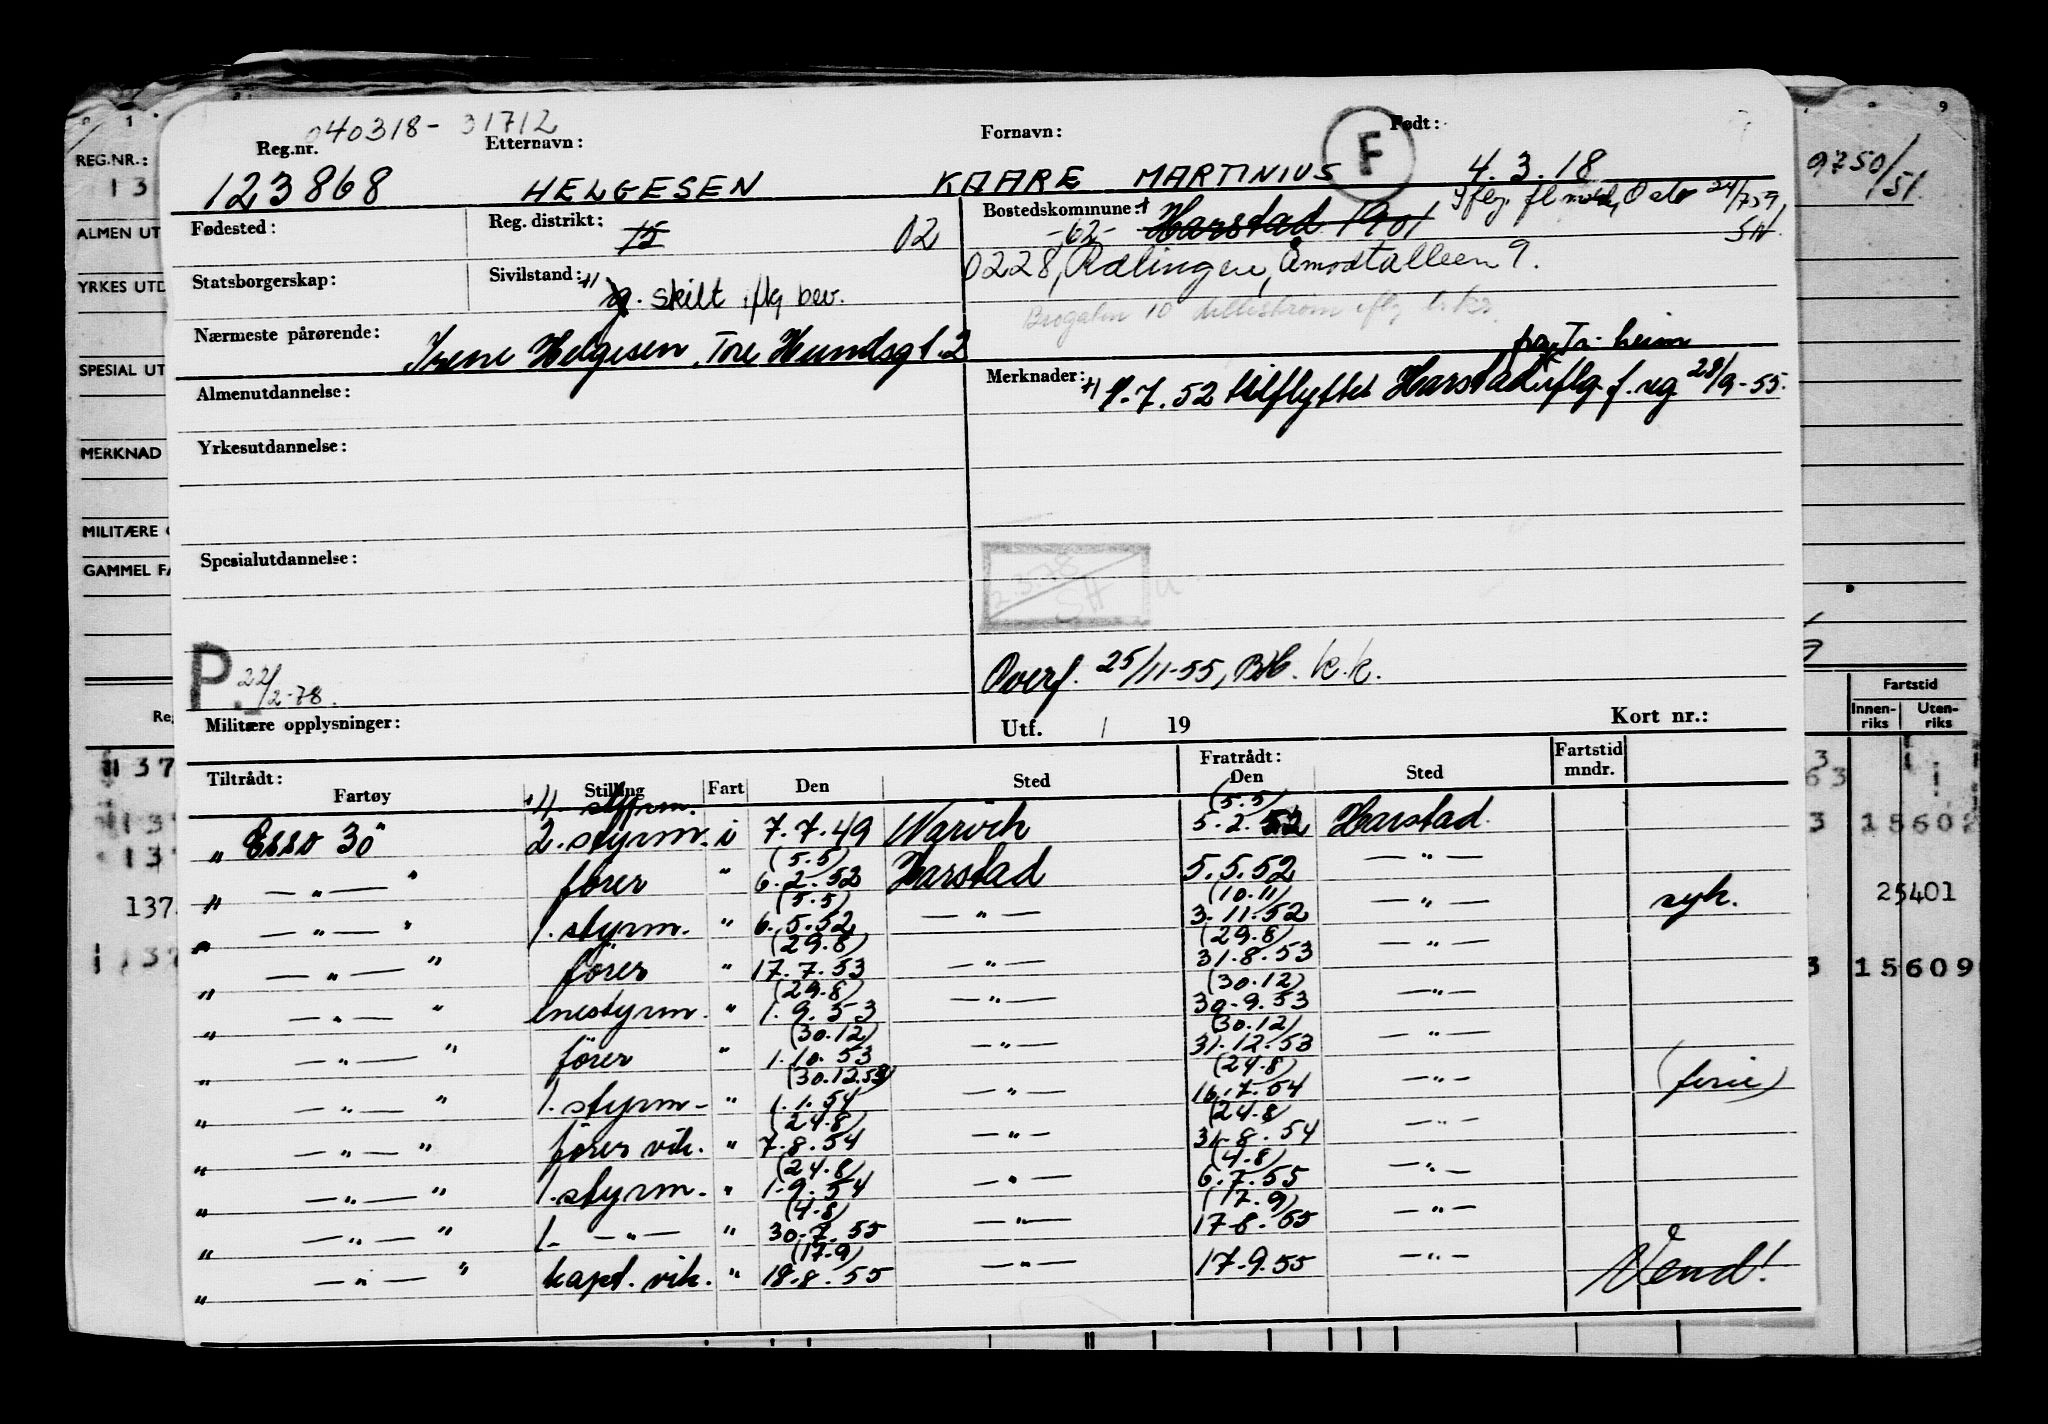 040318- 31712
Reg.nr. Etternavn: Fornavn: Født:
123868 HELGESEN KAARE MARTINIUS F 4.3.18
Fødested: Reg. distrikt: 15 02 Bostedskommune: Harstad 1901
-62-
Statsborgerskap: Sivilstand: g. skilt iflg bev. 0228, Rælingen, Åmodtalleen 9.
Brogaten 10 Lillestrøm iflg
Nærmeste pårørende: Irene Helgesen, Tore Hundsgt. 2
Tr. heim
Almenutdannelse: Merknader: 1.7.52 tilflyttet Harstad iflg f.reg 28/9-55.
Yrkesutdannelse:
Spesialutdannelse:
2.3.78
SH
P. 22/2-78 Overf. 25/11-55, k.k.
Militære opplysninger: Utf. / 19 Kort nr.:
Tiltrådt: Fratrådt: Fartstid
Fartøy Stilling Fart Den Sted Den Sted mndr.
4 styrm. (5.5)
" Esso 30" 2. styrm. i 7.7.49 Narvik 5.2.52 Harstad.
(5.5)
" — " — " fører " 6.2.52 Harstad 5.5.52 — " —
(5.5) (10.11)
" — " — " 1. styrm. " 6.5.52 — " — 3.11.52 — " — syk.
(29.8) (29.8)
" — " — " fører " 17.7.53 — " — 31.8.53 — " —
(29.8) (30.12)
" — " — " enestyrm. " 1.9.53 — " — 30.9.53 — " —
(30.12) (30.12)
" — " — " fører " 1.10.53 — " — 31.12.53 — " —
(30.12.53) (24.8)
" — " — " 1. styrm- " 1.1.54 — " — 16.7.54 — " — (ferie)
(24.8) (24.8)
" — " — " fører vik. " 7.8.54 — " — 31.8.54 — " —
(24.8) (4.8)
" — " — " 1. styrm. " 1.9.54 — " — 6.7.55 — " —
(4.8) (17.9)
" — " — " 1. — " — " 30.7.55 — " — 17.8.55 — " —
(17.9)
" — " — " kapt. vik. " 18.8.55 — " — 17.9.55 — " — Vend!
REG.NR.:
13
ALMEN UT
YRKES UTD
SPESIAL UT
MERKNAD
MILITÆRE
GAMMEL FA
137
137
9
9750/51
Fartstid
Innen-riks Uten-riks
3
63
3 15602
25401
3 15609